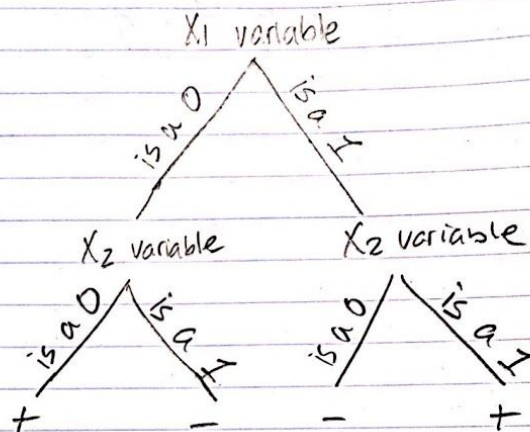 X1 variable
is a 0
is a 1
X2 variable
X2 variable
is a 0
is a 1
is a 0
is a 1
+
-
-
+